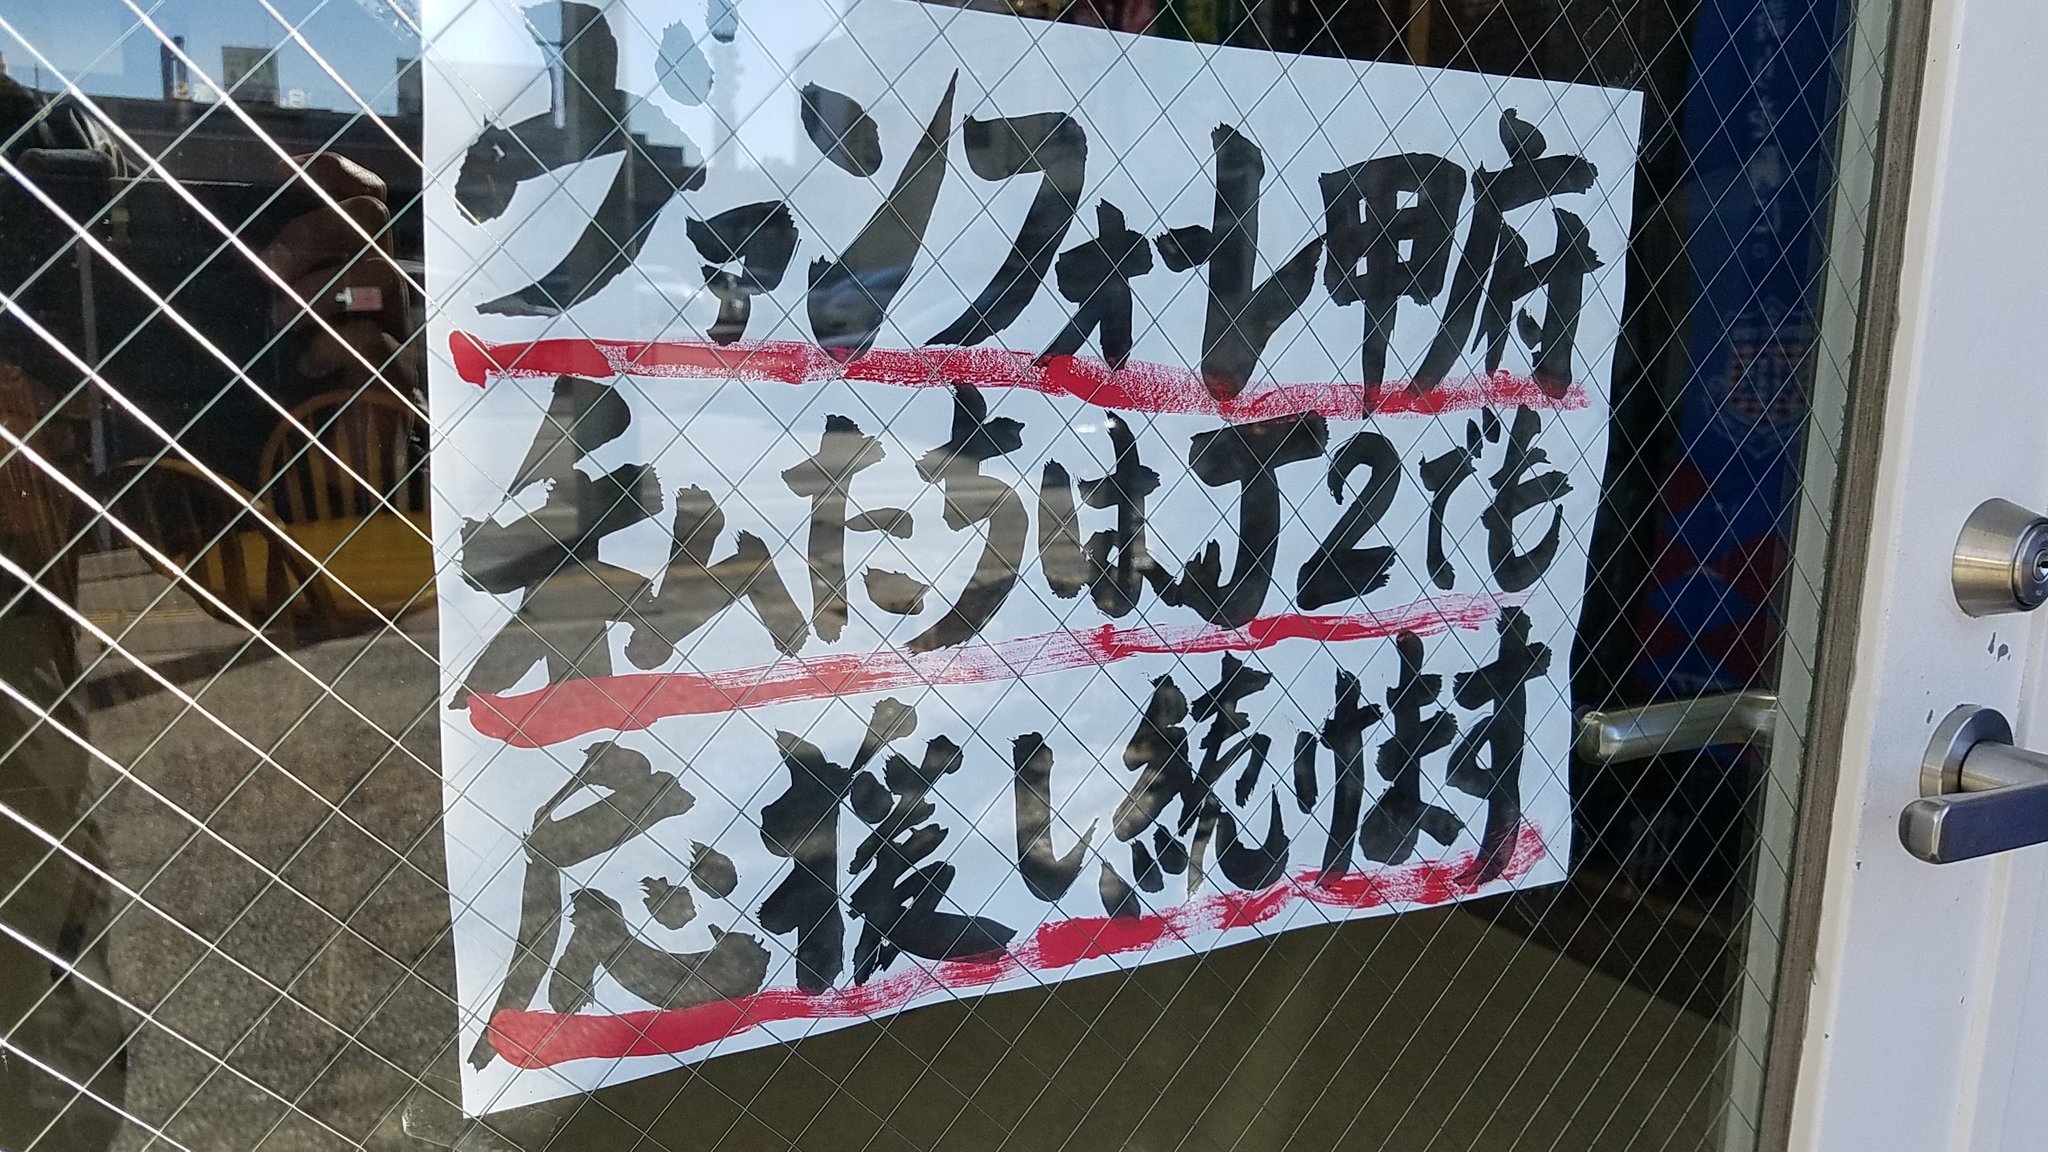 ヴァンフォーレ甲府
私たちはJ2でも
応援し続けます